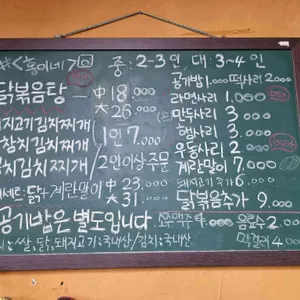 중: 2-3인 대: 3~4인
닭볶음탕 - 中 18.000
大 26.000
돼지고기김치찌개
참치김치찌개
김치찌개
1인 7.000
2인이상주문
세트: 닭, 계란말이 中 23.000
大 31.000
공기밥은 별도입니다
쌀, 닭, 돼지고기: 국내산 / 김치: 국내산
공기밥 1.000 떡사리 2.000
라면사리 1.000
만두사리 3.000
햄사리 3.000
우동사리 2.000
계란말이 7.000
돼지고기추가 6.000
닭볶음추가 9.000
소주맥주 4.000 음료수 2.000
막걸리 4.000